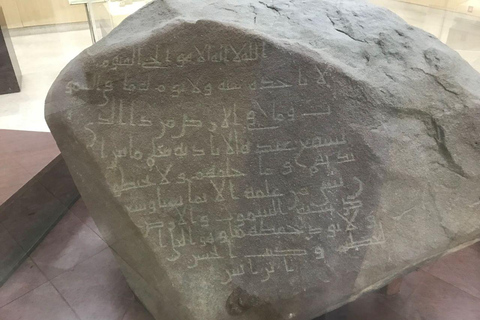 الله لا اله الا هو الحي القيوم
لا تاخذه سنة ولا نوم له ما في السمو
ت وما في الارض من ذا الذي
يشفع عنده الا باذنه يعلم ما بين ا
يديهم وما خلفهم ولا يحيطو
ن بشي من علمه الا بما شا وسع
كرسيه السموت والارض
ولا يوده حفظهما وهو العلي
العظيم وكتب